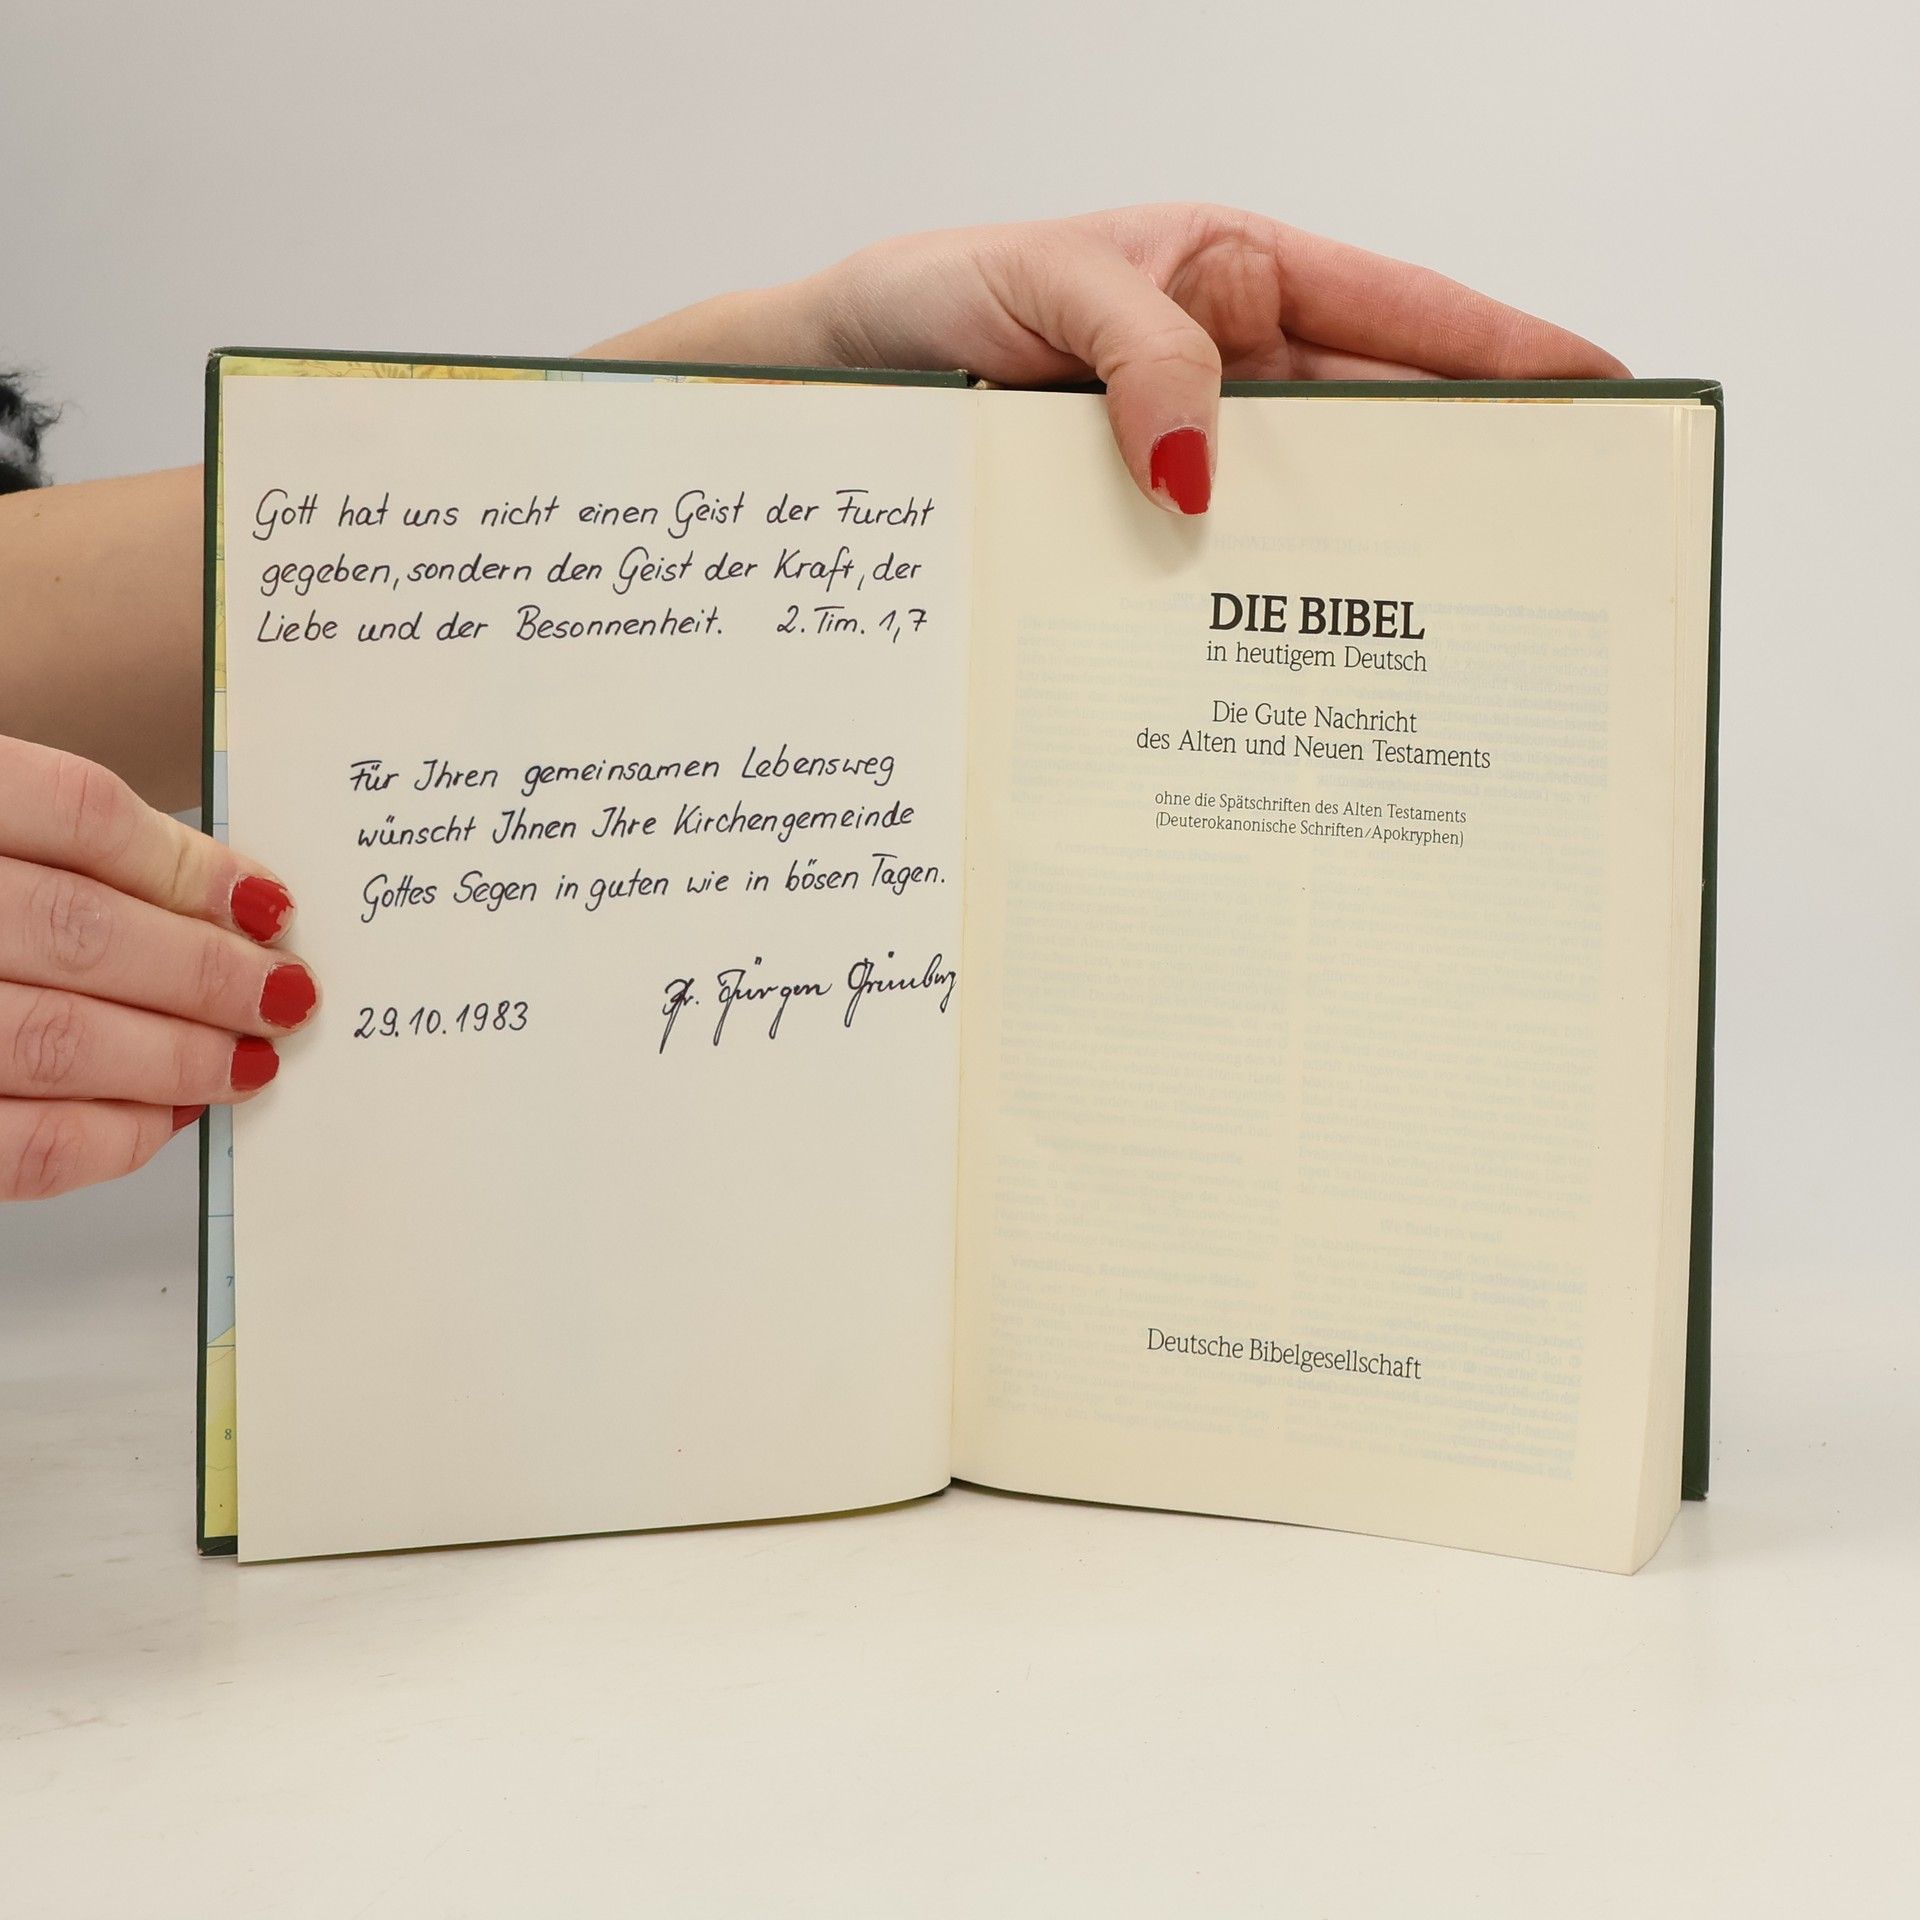 Gott hat uns nicht einen Geist der Furcht
gegeben, sondern den Geist der Kraft, der
Liebe und der Besonnenheit. 2. Tim. 1,7
Für Ihren gemeinsamen Lebensweg
wünscht Ihnen Ihre Kirchengemeinde
Gottes Segen in guten wie in bösen Tagen.
29.10.1983 Jürgen
DIE BIBEL
in heutigem Deutsch
Die Gute Nachricht
des Alten und Neuen Testaments
ohne die Spätschriften des Alten Testaments
(Deuterokanonische Schriften/Apokryphen)
Deutsche Bibelgesellschaft
6
7
8